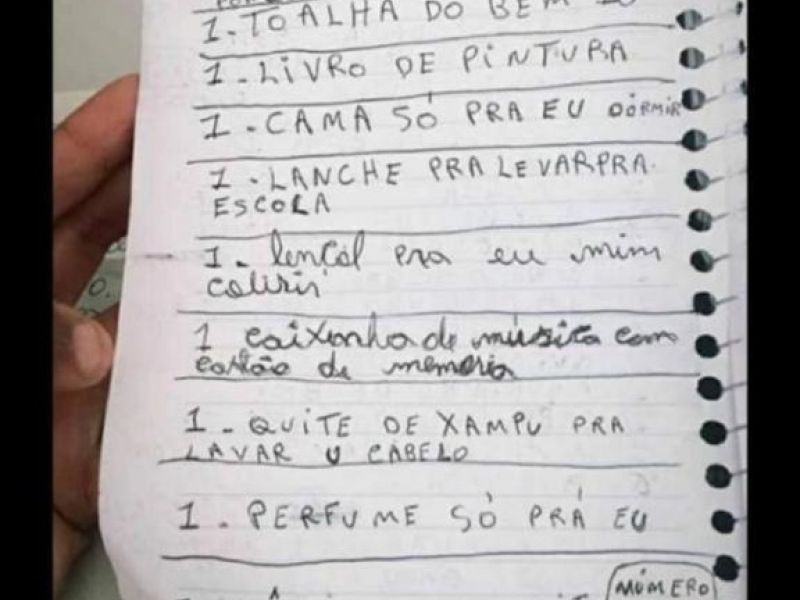 1. TOALHA DO BEM 10
1. LIVRO DE PINTURA
1. CAMA SÓ PRA EU DÓRMIR
1. LANCHE PRA LEVARPRA
ESCOLA
1. lençol pra eu mim
cobrir
1 caixonha de música com
cartão de memoria
1. QUITE DE XAMPU PRA
LAVAR U CABELO
1. PERFUME SÓ PRÁ EU
NÚMERO